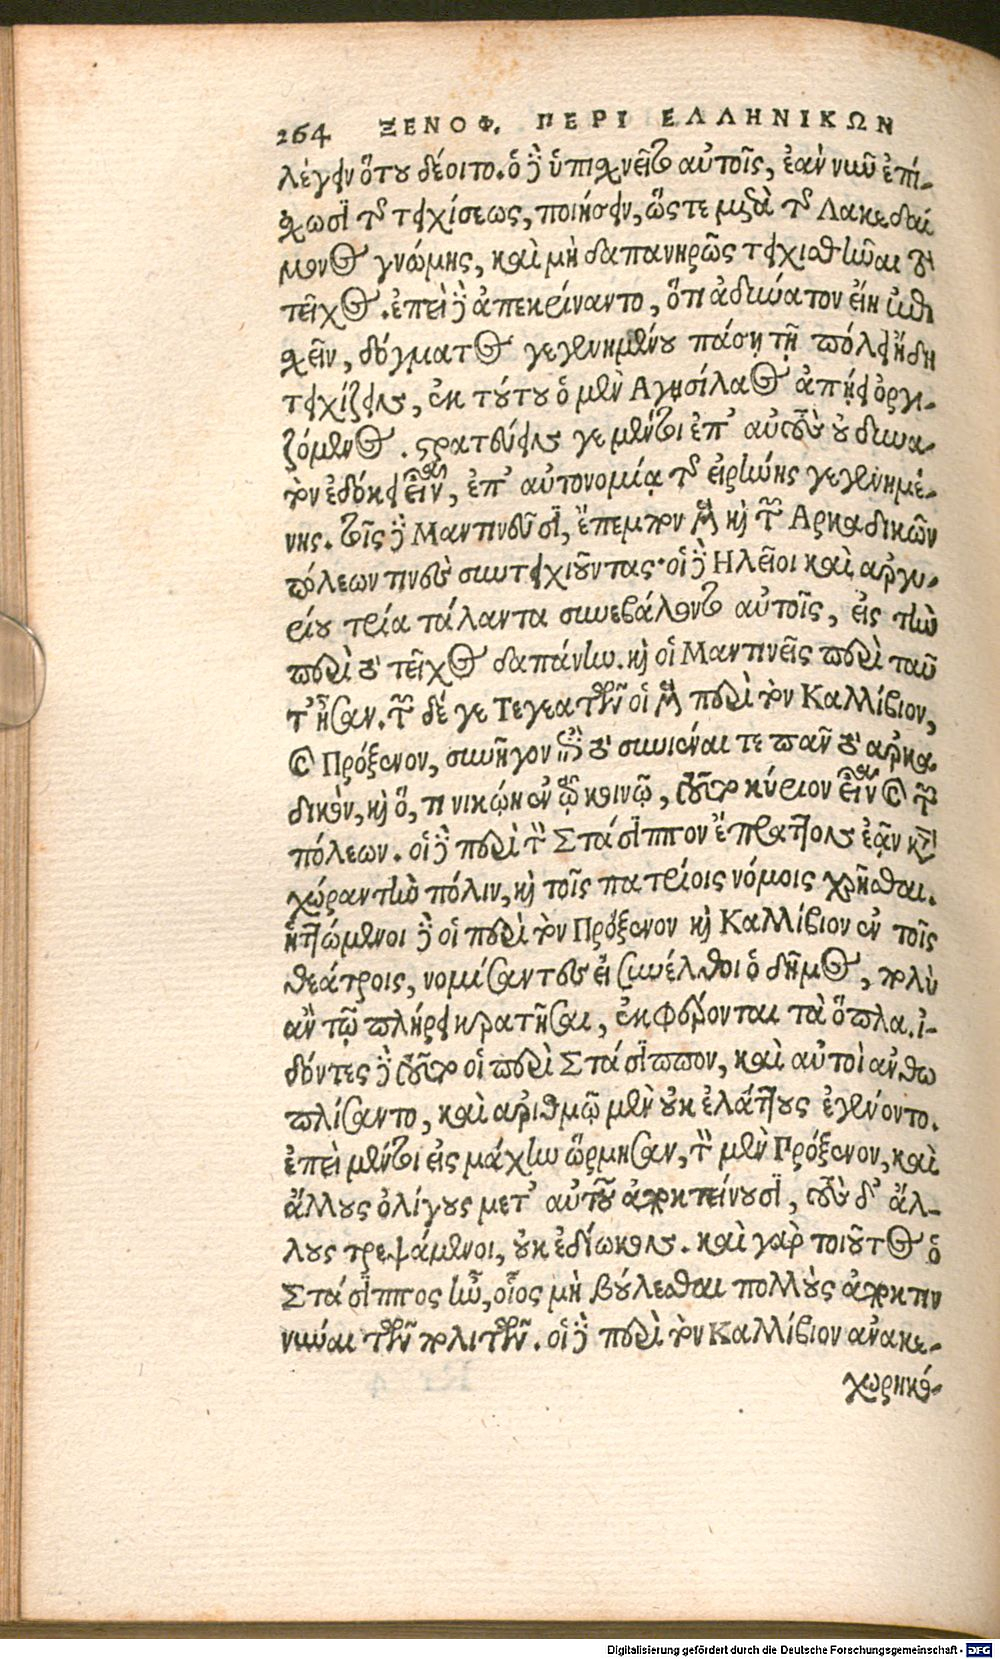 264 ΞΕΝΟΦ. ΠΕΡΙ ΕΛΛΗΝΙΚΩΝ
λέγειν ὅτου δέοιτο. ὁ δὲ ὑπισχνεῖτο αὐτοῖς, ἐὰν νῦν ἐπί-
σχωσι τῆς τειχίσεως, ποιήσειν, ὥστε μετὰ τῆς Λακεδαί
μονος γνώμης, καὶ μὴ δαπανηρῶς τειχισθῆναι τὸ
τεῖχος. ἐπεὶ δὲ ἀπεκρίναντο, ὅτι ἀδύνατον εἴη ἐπι
σχεῖν, δόγματος γεγενημένου πάσῃ τῇ πόλει ἤδη
τειχίζειν, ἐκ τούτου ὁ μὲν Αγησίλαος ἀπῄει ὀργι-
ζόμενος. στρατεύειν γε μέντοι ἐπ' αὐτοὺς οὐ δυνα-
τὸν ἐδόκει εἶναι, ἐπ' αὐτονομίᾳ τῆς εἰρήνης γεγενημέ-
νης. τοῖς δὲ Μαντινεῦσι, ἔπεμπον μὲν καὶ τῶν Αρκαδικῶν
πόλεων τινὲς συντειχιοῦντας· οἱ δὲ Ηλεῖοι καὶ ἀργυ-
ρίου τρία τάλαντα συνεβάλοντο αὐτοῖς, εἰς τὴν
περὶ τὸ τεῖχος δαπάνην. καὶ οἱ Μαντινεῖς περὶ ταῦ
τ' ἦσαν. τῶν δέ γε Τεγεατῶν οἱ μὲν περὶ τὸν Καλλίβιον,
καὶ Πρόξενον, συνῆγον ἐπὶ τὸ συνιέναι τε πᾶν τὸ ἀρκα
δικὸν, καὶ ὅ, τι νικῴη ἐν τῷ κοινῷ, τοῦτο κύριον εἶναι καὶ τῶν
πόλεων. οἱ δὲ περὶ τὸν Στάσιππον ἔπραττον ἐᾷν κατὰ
χώραν τὴν πόλιν, καὶ τοῖς πατρίοις νόμοις χρῆσθαι.
ἡττώμενοι δὲ οἱ περὶ τὸν Πρόξενον καὶ Καλλίβιον ἐν τοῖς
θεάτροις, νομίσαντες εἰ συνέλθοι ὁ δῆμος, πολὺ
ἂν τῷ πλήρει κρατῆσαι, ἐκφέρονται τὰ ὅπλα. ἰ-
δόντες δὲ τοῦτο οἱ περὶ Στάσιππον, καὶ αὐτοὶ ἀνθω
πλίσαντο, καὶ ἀριθμῷ μὲν οὐκ ἐλάττους ἐγένοντο.
ἐπεὶ μέντοι εἰς μάχην ὥρμησαν, τὸν μὲν Πρόξενον, καὶ
ἄλλους ὀλίγους μετ' αὐτοῦ ἀποκτείνουσι, τοὺς δ' ἄλ-
λους τρεψάμενοι, οὐκ ἐδίωκον. καὶ γὰρ τοιοῦτος ὁ
Στάσιππος ἦν, οἷος μὴ βούλεσθαι πολλοὺς ἀποκτιν
νύναι τῶν πολιτῶν. οἱ δὲ περὶ τὸν Καλλίβιον ἀνακε-
χωρηκό-
Digitalisierung gefördert durch die Deutsche Forschungsgemeinschaft - DFG